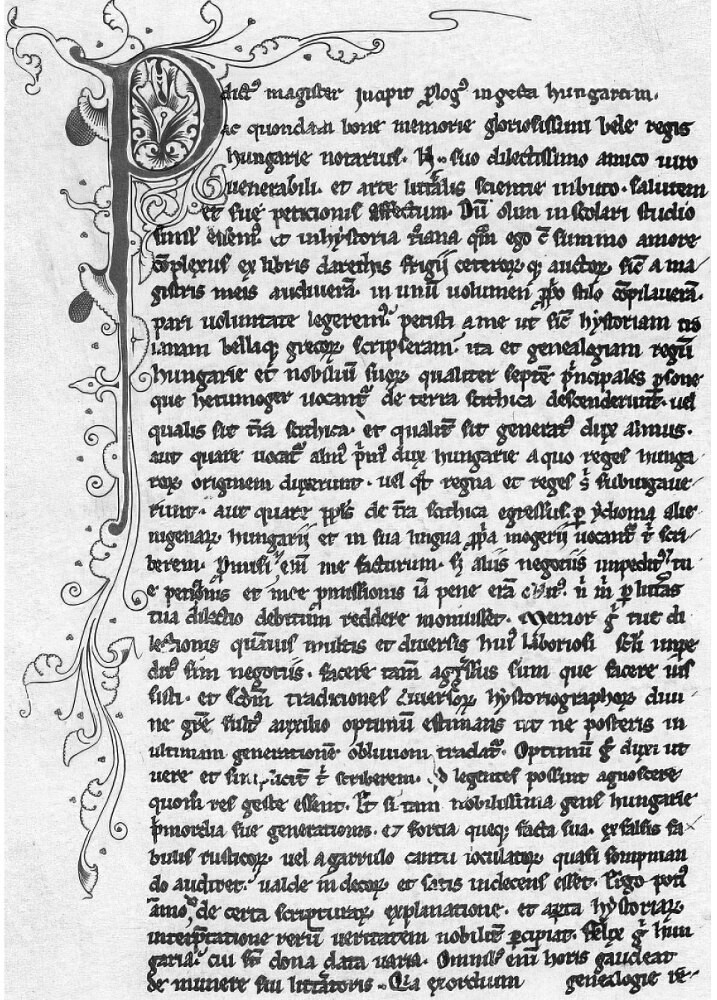 P dict᷒ magister incipit ꝓlog᷒ in gesta hungarum.
ac quondam bone memorie gloriosissimi bele regis
hungarie notarius. N. suo dilectissimo amico uiro
uenerabili. et arte litt̄alis scientie inbuto. salutem
et sue peticionis effectum. Dū olim in scolari studio
simul essem᷒. et in hystoria t̄iana qm̄ ego cū summo amore
cōplexus ex libris darethis frigii ceteroꝝ qꝫ auctoꝝ. sic̄ a ma
gistris meis audiuerā. in unū uolumen ꝓprio stilo cōpilauerā
pari uoluntate legerem᷒. petisti a me ut sic̄ hystoriam tro
ianam bellaqꝫ grecoꝝ scripseram. ita et genealogiam regū
hungarie et nobiliū suoꝝ. qualiter septē p̄ncipales ꝑsone
que hetumoger uocant᷒. de terra scithica descenderunt. uel
qualis sit t̄ra scithica. et qualit̄ sit generat᷒ dux almus.
aut quare uocat᷒ alm᷒ p̄m᷒ dux hungarie a quo reges hunga
roꝝ originem duxerunt. uel qt̄ regna et reges s̄ subiugaue
runt. aut quare ppl̄s de t̄ra scithica egressus. ꝑ ydioma alie
nigenaꝝ hungarii et in sua lingua ꝓpria mogerii uocant᷒ t̄ scri
berem. Promisi em̄ me facturum. sꝫ aliis negotiis impedit᷒. tu
e peticionis et mee ꝓmissionis iā pene erā oblit᷒. n̄ m̄ ꝑ litt̄as
tua dilectio debitum reddere monuisset. Memor ḡ tue di
lectionis quāuis multis et diuersis hui᷒ laboriosi scl̄i impe
dit᷒ sim negotiis. facere tam̄ aggressus sum que facere ius
sisti. et scd̄m traditiones diuersoꝝ hystoriographoꝝ diui
ne gr̄e fult᷒ auxilio optimū estimans ut ne posteris in
ultimam generationē obliuioni tradat᷒. Optimū ḡ duxi ut
uere et simpliciter t̄ scriberem. ut legentes possint agnoscere
quom̄ res geste essent. Et si tam nobilissima gens hungarie
p̄mordia sue generationis. et fortia queqꝫ facta sua. ex falsis fa
bulis rusticoꝝ. uel a garrulo cantu ioculatoꝝ quasi sompnian
do audiret. ualde indecoꝝ et satis indecens esset. Ergo poti᷒
āmō de certa scripturaꝝ explanatione. et apta hystoriaꝝ
interp̄tatione rerū ueritatem nobilit̄ ꝑcipiat. Felix ḡ hun
garia. cui s̄t dona data uaria. Omnib᷒ em̄ horis gaudeat
de munere sui litt̄atoris. Quia exordium genealogie re-